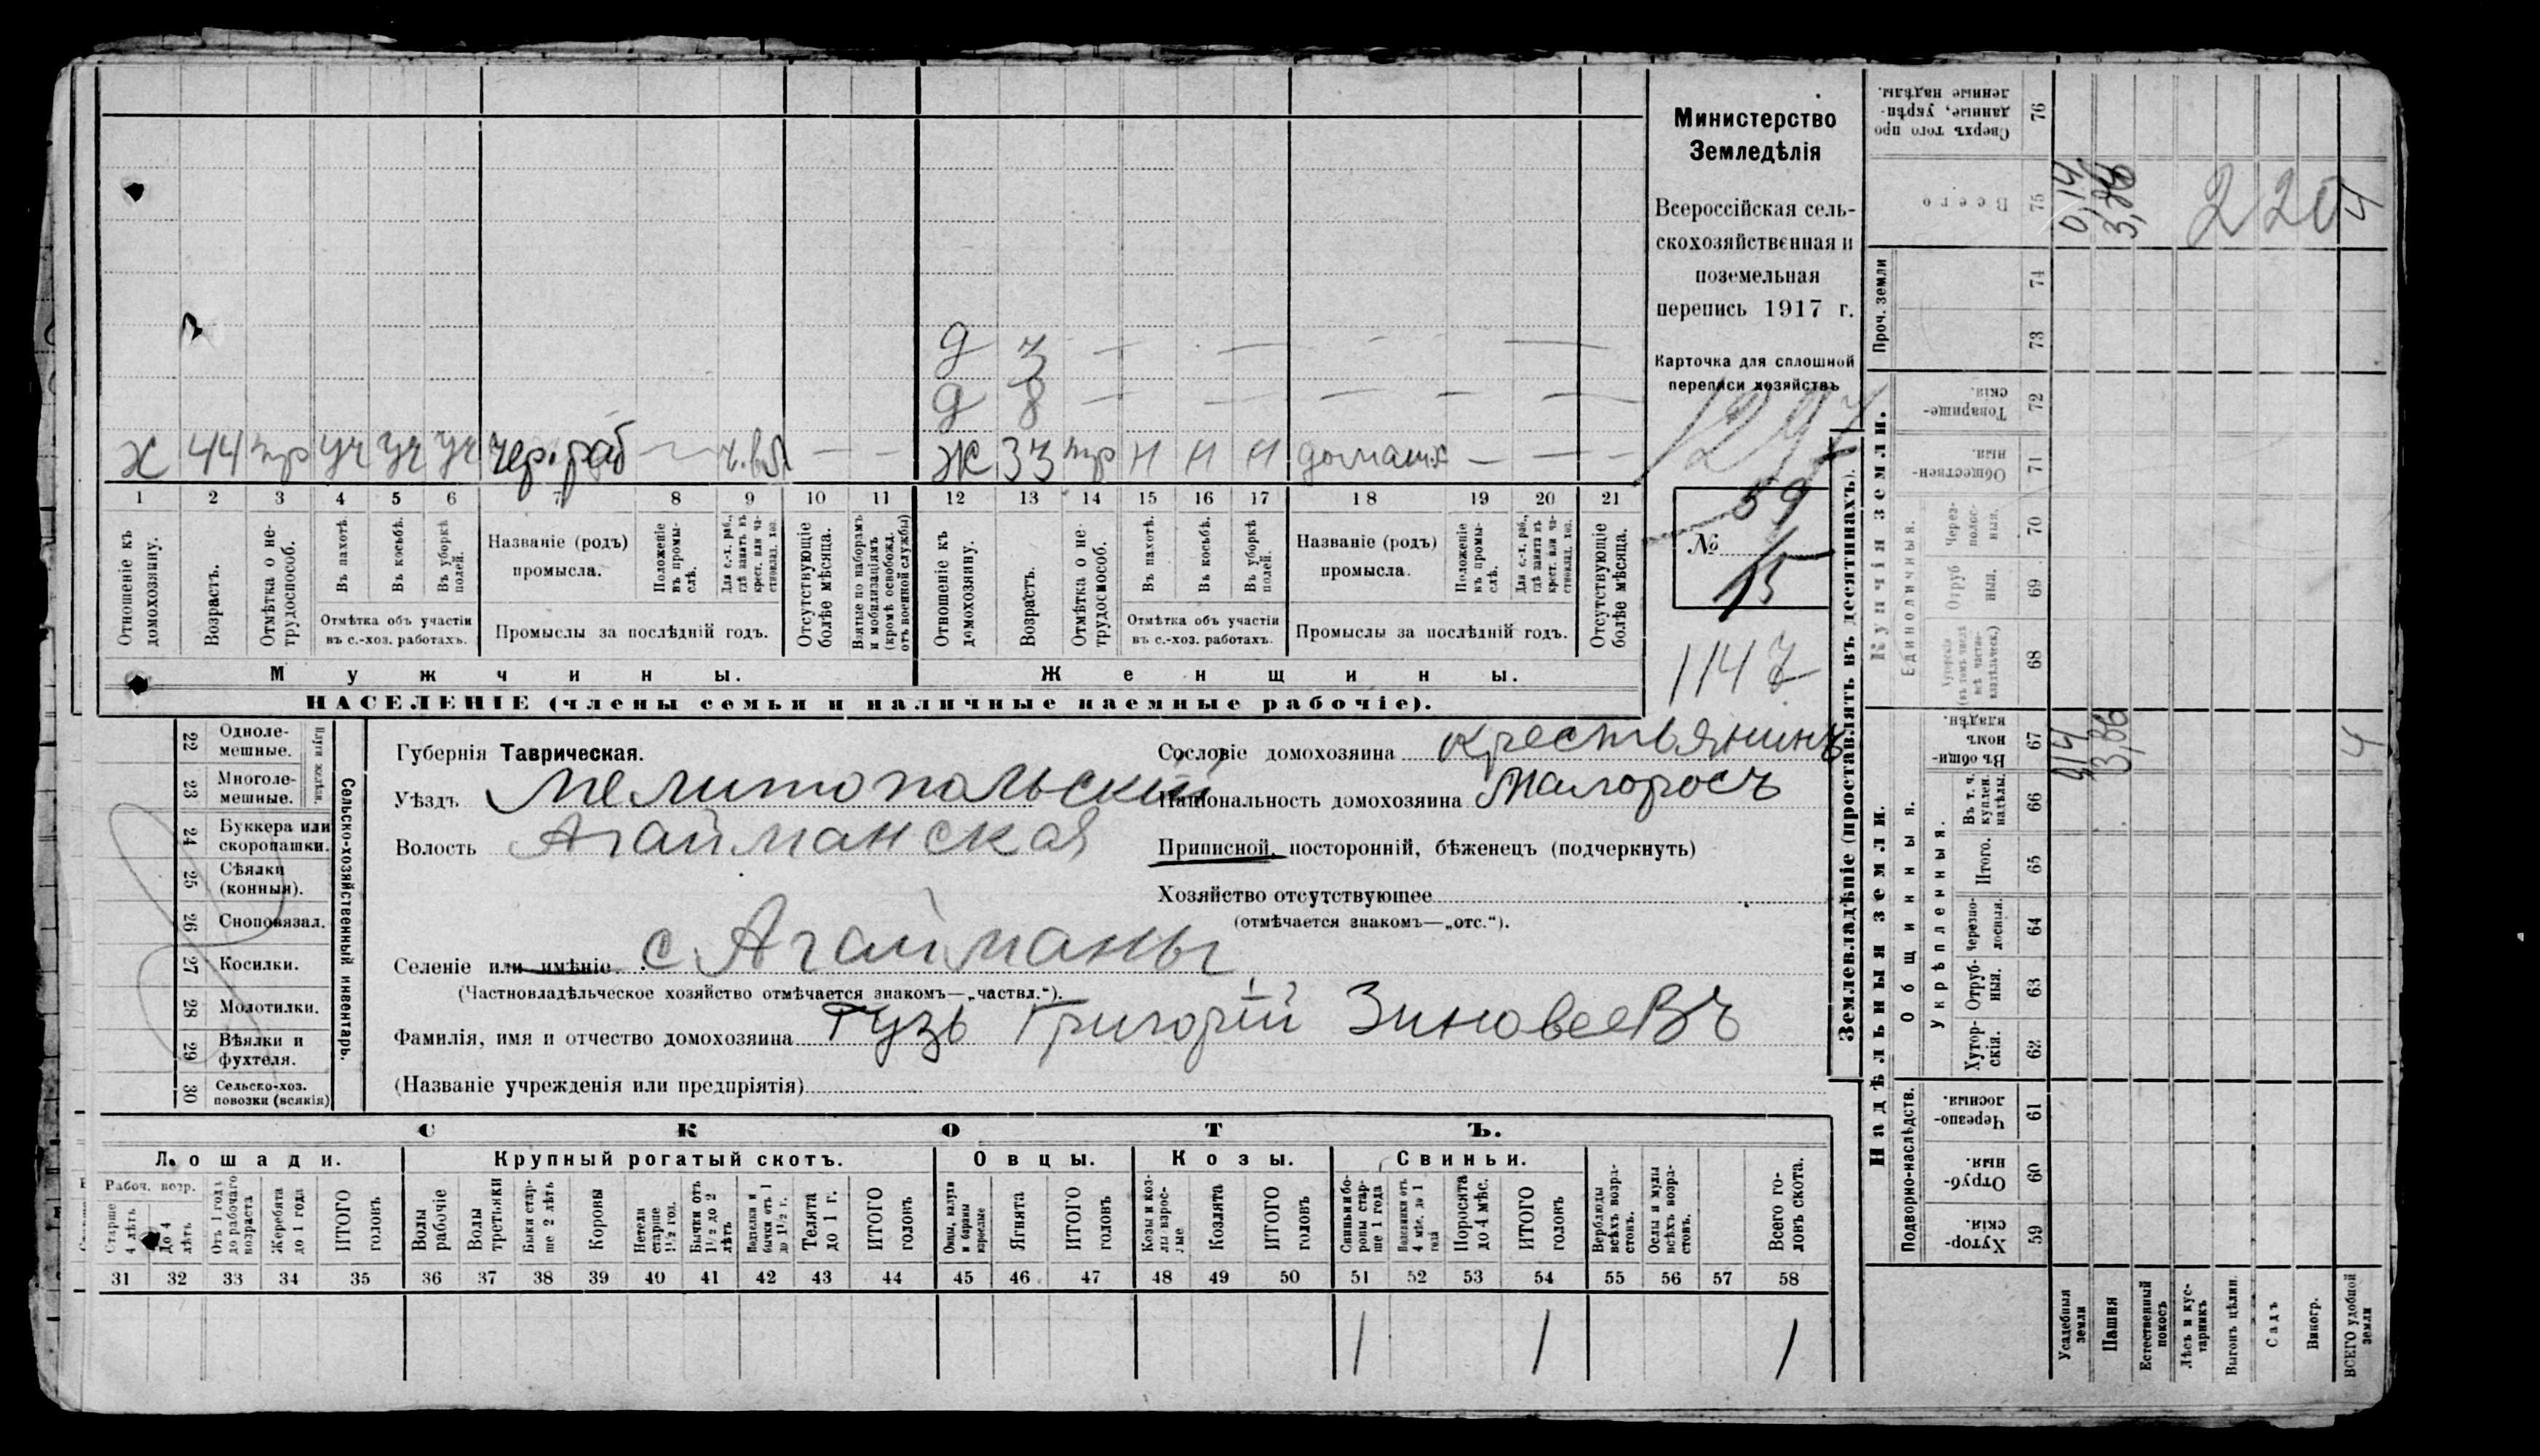 Министерство
Земледѣлія
Всероссійская сель-
скохозяйственная и
поземельная
перепись 1917 г.
Карточка для сплошной
переписи хозяйствъ
1297
59
№
15
1147
д 3 — — — — —
д 8 — — — — — —
х 44 пр уч уч уч чер. раб — — —
ж 33 пр н н н домашх — — —
1 2 3 4 5 6 7 8 9 10 11 12 13 14 15 16 17 18 19 20 21
Отношеніе къ домохозяину.
Возрастъ.
Отмѣтка о не-трудоспособ.
Въ пахотѣ.
Въ косьбѣ.
Въ уборкѣ полей.
Отмѣтка объ участіи
въ с.-хоз. работахъ.
Названіе (родъ)
промысла.
Положеніе въ промы-слѣ.
Для с.-х. раб., гдѣ занятъ въ крест. или ча-стновлад. хоз.
Промыслы за послѣдній годъ.
Отсутствующіе болѣе мѣсяца.
Взятые по наборамъ и мобилизаціямъ (кромѣ освобожд. отъ военной службы)
Отношеніе къ домохозяину.
Возрастъ.
Отмѣтка о не-трудоспособ.
Въ пахотѣ.
Въ косьбѣ.
Въ уборкѣ полей.
Отмѣтка объ участіи
въ с.-хоз. работахъ.
Названіе (родъ)
промысла.
Положеніе въ промы-слѣ.
Для с.-х. раб., гдѣ занята въ крест. или ча-стновлад. хоз.
Промыслы за послѣдній годъ.
Отсутствующіе болѣе мѣсяца.
Мужчины.
Женщины.
НАСЕЛЕНІЕ (члены семьи и наличные наемные рабочіе).
Губернія Таврическая.
Уѣздъ Мелитопольскій
Волость Агайманская
Селеніе или имѣніе с. Агайманы
(Частновладѣльческое хозяйство отмѣчается знакомъ—„частвл.“).
Фамилія, имя и отчество домохозяина Гузь Григорій Зиновеевъ
(Названіе учрежденія или предпріятія)
Сословіе домохозяина крестьянинъ
Національность домохозяина Малоросъ
Приписной, посторонній, бѣженецъ (подчеркнуть)
Хозяйство отсутствующее
(отмѣчается знакомъ—„отс.“).
Сельско-хозяйственный инвентарь.
Плуги желѣзн.
22 Одноле-мешные.
23 Многоле-мешные.
24 Буккера или скоропашки.
25 Сѣялки (конныя).
26 Сноповязал.
27 Косилки.
28 Молотилки.
29 Вѣялки и фухтеля.
30 Сельско-хоз. повозки (всякія)
СКОТЪ.
Лошади.
Крупный рогатый скотъ.
Овцы.
Козы.
Свиньи.
Рабоч. возр.
Старше 4 лѣтъ
До 4 лѣтъ
Отъ 1 года до рабочаго возраста
Жеребята до 1 года
ИТОГО головъ
Волы рабочіе
Волы третьяки
Быки стар-ше 2 лѣтъ
Коровы
Нетели старше 1½ год.
Бычки отъ 1½ до 2 лѣтъ
Телки и бычки отъ 1 до 1½ г.
Телята до 1 г.
ИТОГО головъ
Овцы, валухи и бараны взрослые
Ягнята
ИТОГО головъ
Козы и коз-лы взрос-лые
Козлята
ИТОГО головъ
Свиньи и бо-ровы стар-ше 1 года
Подсвинки отъ 4 мѣс. до 1 года
Поросята до 4 мѣс.
ИТОГО головъ
Верблюды всѣхъ возра-стовъ.
Ослы и мулы всѣхъ возра-стовъ.
Всего го-ловъ скота.
31 32 33 34 35 36 37 38 39 40 41 42 43 44 45 46 47 48 49 50 51 52 53 54 55 56 57 58
1 1 1
Землевладѣніе (проставлять въ десятинахъ).
Надѣльныя земли.
Купчія земли.
Проч. земли
Подворно-наслѣдств.
Общинныя.
Укрѣпленныя.
Единоличныя.
Сверхъ того про-данные, укрѣп-ленные надѣлы. 76
Всего 75 0,14 3,86 2 20 4
74
73
Товарище-скія. 72
Обществен-ныя. 71
Через-полос-ныя. 70
Отруб-ныя. 69
Хуторскія (въ томъ числѣ всѣ частно-владѣльческ.) 68
Въ общи-номъ владѣн. 67 3,86 4
Въ т. ч. куплен. надѣлы. 66
Итого. 65
Черезпо-лосныя. 64
Отруб-ныя. 63
Хутор-скія. 62
Черезпо-лосныя. 61
Отруб-ныя. 60
Хутор-скія. 59
Усадебныя земли
Пашня
Естественный покосъ
Лѣсъ и кус-тарникъ
Выгонъ цѣлин.
Садъ
Виногр.
ВСЕГО удобной земли